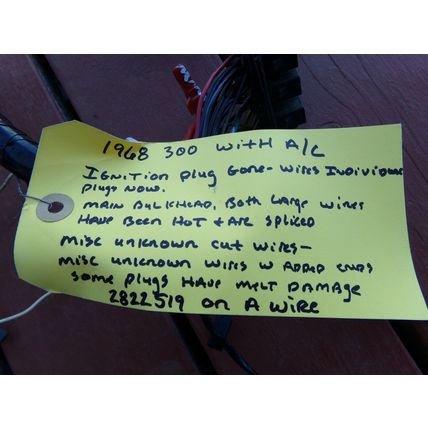 1968 300 with A/C
Ignition plug Gone - wires Individual
plugs now.
Main Bulkhead, Both Large wires
Have Been Hot + are spliced
Misc unknown cut wires -
Misc unknown wires w added ends
some plugs Have melt Damage
2822519 on A wire